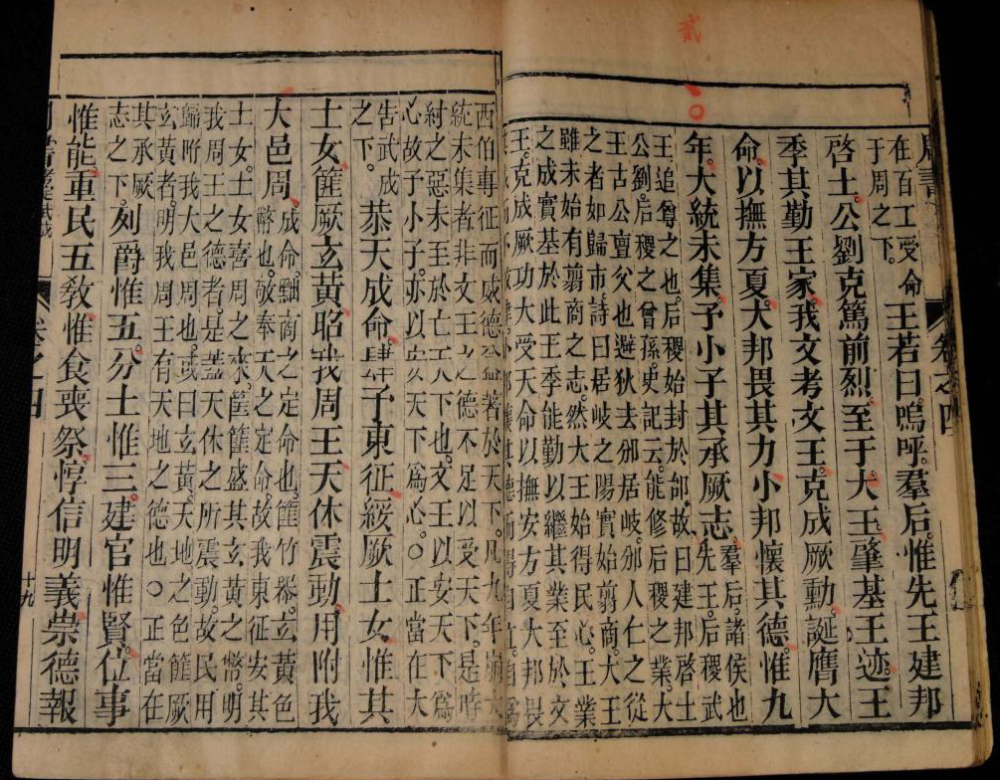 貳
卷之四
在百工受命
于周之下。王若曰。嗚呼。羣后。惟先王建邦
啓土。公劉克篤前烈。至于大王肇基王迹。王
季其勤王家。我文考文王。克成厥勳。誕膺大
命。以撫方夏。大邦畏其力。小邦懷其德。惟九
年。大統未集。予小子其承厥志。羣后。諸侯也
先王。后稷。武
王追尊之也。后稷始封於邰。故曰建邦啓土
公劉。后稷之曾孫。史記云。能修后稷之業。大
王古公亶父也。避狄去邠居岐。邠人仁之。從
之者如歸市。詩曰居岐之陽。實始翦商。大王
雖未始有翦商之志。然大王始得民心。王業
之成。實基於此。王季能勤以繼其業。至於文
王。克成厥功。大受天命。以撫安方夏。大邦畏
小邦懷其德而得自立。自爲
西伯專征。而威德益著於天下。凡九年崩。大
統未集者。非文王之德不足以受天下。是時
紂之惡未至於亡天下也。文王以安天下爲
心。故予小子。亦以安天下爲心。○正當在大
告武成
之下。恭天成命。肆予東征。綏厥士女。惟其
士女。篚厥玄黃。昭我周王。天休震動。用附我
大邑周。成命。黜商之定命也。篚。竹器。玄黃。色
幣也。敬奉天之定命。故我東征安其
士女。士女喜周之來。筐篚盛其玄黃之幣。明
我周王之德者。是蓋天休之所震動。故民用
歸附我大邑周也。或曰。玄黃。天地之色。篚厥
玄黃者。明我周王有天地之德也。○正當在
其承厥
志之下。列爵惟五。分土惟三。建官惟賢。位事
惟能。重民五敎。惟食喪祭。惇信明義。崇德報
卷之四
十九